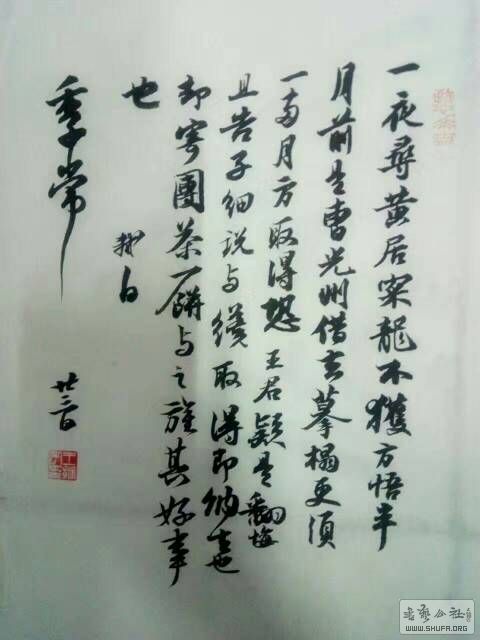 一夜尋黄居寀龍不獲方悟半
月前是曹光州借去摹搨更須
一兩月方取得恐王君疑是翻悔
且告子細說与纔取得即納去也
却寄團茶一餅与之旌其好事
也
軾白
季常
廿三日
書藝公社
WWW.SHUFA.ORG